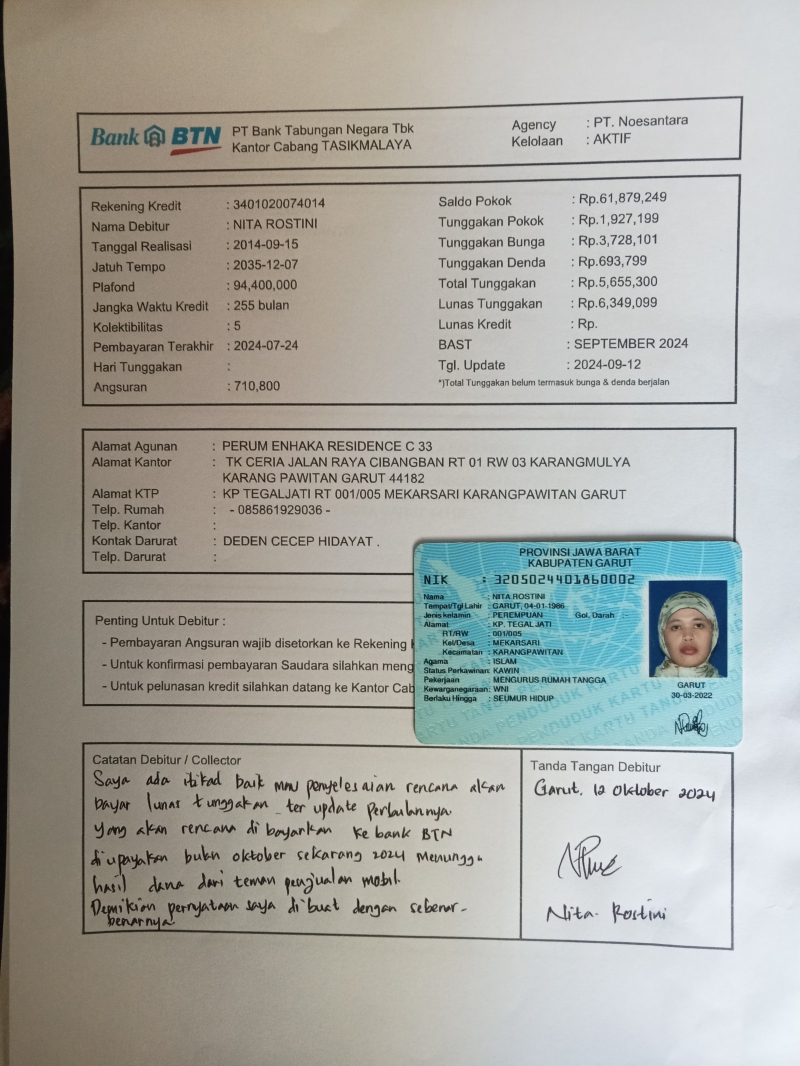 Bank BTN
PT Bank Tabungan Negara Tbk
Kantor Cabang TASIKMALAYA
Agency : PT. Noesantara
Kelolaan : AKTIF
Rekening Kredit : 3401020074014
Nama Debitur : NITA ROSTINI
Tanggal Realisasi : 2014-09-15
Jatuh Tempo : 2035-12-07
Plafond : 94,400,000
Jangka Waktu Kredit : 255 bulan
Kolektibilitas : 5
Pembayaran Terakhir : 2024-07-24
Hari Tunggakan :
Angsuran : 710,800
Saldo Pokok : Rp.61,879,249
Tunggakan Pokok : Rp.1,927,199
Tunggakan Bunga : Rp.3,728,101
Tunggakan Denda : Rp.693,799
Total Tunggakan : Rp.5,655,300
Lunas Tunggakan : Rp.6,349,099
Lunas Kredit : Rp.
BAST : SEPTEMBER 2024
Tgl. Update : 2024-09-12
*)Total Tunggakan belum termasuk bunga & denda berjalan
Alamat Agunan : PERUM ENHAKA RESIDENCE C 33
Alamat Kantor : TK CERIA JALAN RAYA CIBANGBAN RT 01 RW 03 KARANGMULYA
KARANG PAWITAN GARUT 44182
Alamat KTP : KP TEGALJATI RT 001/005 MEKARSARI KARANGPAWITAN GARUT
Telp. Rumah : - 085861929036 -
Telp. Kantor :
Kontak Darurat : DEDEN CECEP HIDAYAT .
Telp. Darurat :
Penting Untuk Debitur :
- Pembayaran Angsuran wajib disetorkan ke Rekening
- Untuk konfirmasi pembayaran Saudara silahkan meng
- Untuk pelunasan kredit silahkan datang ke Kantor Cab
PROVINSI JAWA BARAT
KABUPATEN GARUT
NIK : 3205024401860002
Nama : NITA ROSTINI
Tempat/Tgl Lahir : GARUT, 04-01-1986
Jenis kelamin : PEREMPUAN Gol. Darah
Alamat : KP. TEGAL JATI
RT/RW : 001/005
Kel/Desa : MEKARSARI
Kecamatan : KARANGPAWITAN
Agama : ISLAM
Status Perkawinan: KAWIN
Pekerjaan : MENGURUS RUMAH TANGGA
Kewarganegaraan: WNI
Berlaku Hingga : SEUMUR HIDUP
GARUT
30-03-2022
Catatan Debitur / Collector
Saya ada itikad baik mau penyelesaian rencana akan
bayar lunas tunggakan ter update perbulannya
yang akan rencana di bayarkan ke bank BTN
diupayakan bulan oktober sekarang 2024 Menunggu
hasil dana dari teman penjualan mobil.
Demikian pernyataan saya dibuat dengan sebenar-
benarnya.
Tanda Tangan Debitur
Garut, 12 Oktober 2024
Nita Rostini